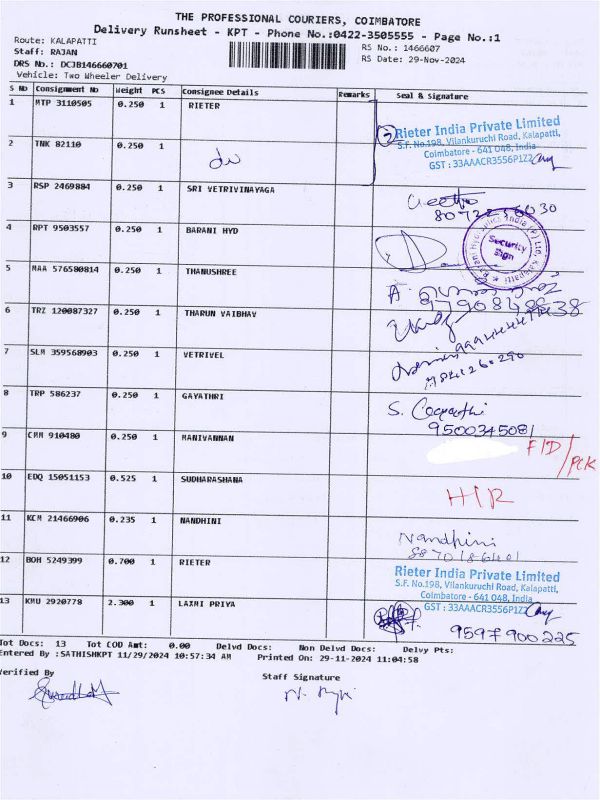 THE PROFESSIONAL COURIERS, COIMBATORE
Delivery Runsheet - KPT - Phone No.:0422-3505555 - Page No.:1
Route: KALAPATTI
RS No.: 1466607
Staff: RAJAN
RS Date: 29-Nov-2024
DRS No.: DCJB146660701
Vehicle: Two Wheeler Delivery
S No Consignment No Weight PCS Consignee Details Remarks Seal & Signature
1 MTP 3110505 0.250 1 RIETER
Rieter India Private Limited
S.F. No.198, Vilankuruchi Road, Kalapatti,
Coimbatore - 641 048, India
GST : 33AAACR3556P1Z2
2 TNK 82110 0.250 1 do
3 RSP 2469884 0.250 1 SRI VETRIVINAYAGA
4 RPT 9503557 0.250 1 BARANI HYD
Security
Sign
5 MAA 576580814 0.250 1 THANUSHREE
6 TRZ 120087327 0.250 1 THARUN VAIBHAV
7 SLM 359568903 0.250 1 VETRIVEL
8 TRP 586237 0.250 1 GAYATHRI
S. Gayathri
9500345081
9 CMM 910480 0.250 1 MANIVANNAN
10 EDQ 15051153 0.525 1 SUDHARASHANA
11 KCM 21466906 0.235 1 NANDHINI
Nandhini
12 BOM 5249399 0.700 1 RIETER
Rieter India Private Limited
S.F. No.198, Vilankuruchi Road, Kalapatti,
Coimbatore - 641 048, India
GST : 33AAACR3556P1Z2
13 KMU 2920778 2.300 1 LAXMI PRIYA
9597900225
Tot Docs: 13 Tot COD Amt: 0.00 Delvd Docs: Non Delvd Docs: Delvy Pts:
Entered By :SATHISHKPT 11/29/2024 10:57:34 AM Printed On: 29-11-2024 11:04:58
Verified By
Staff Signature